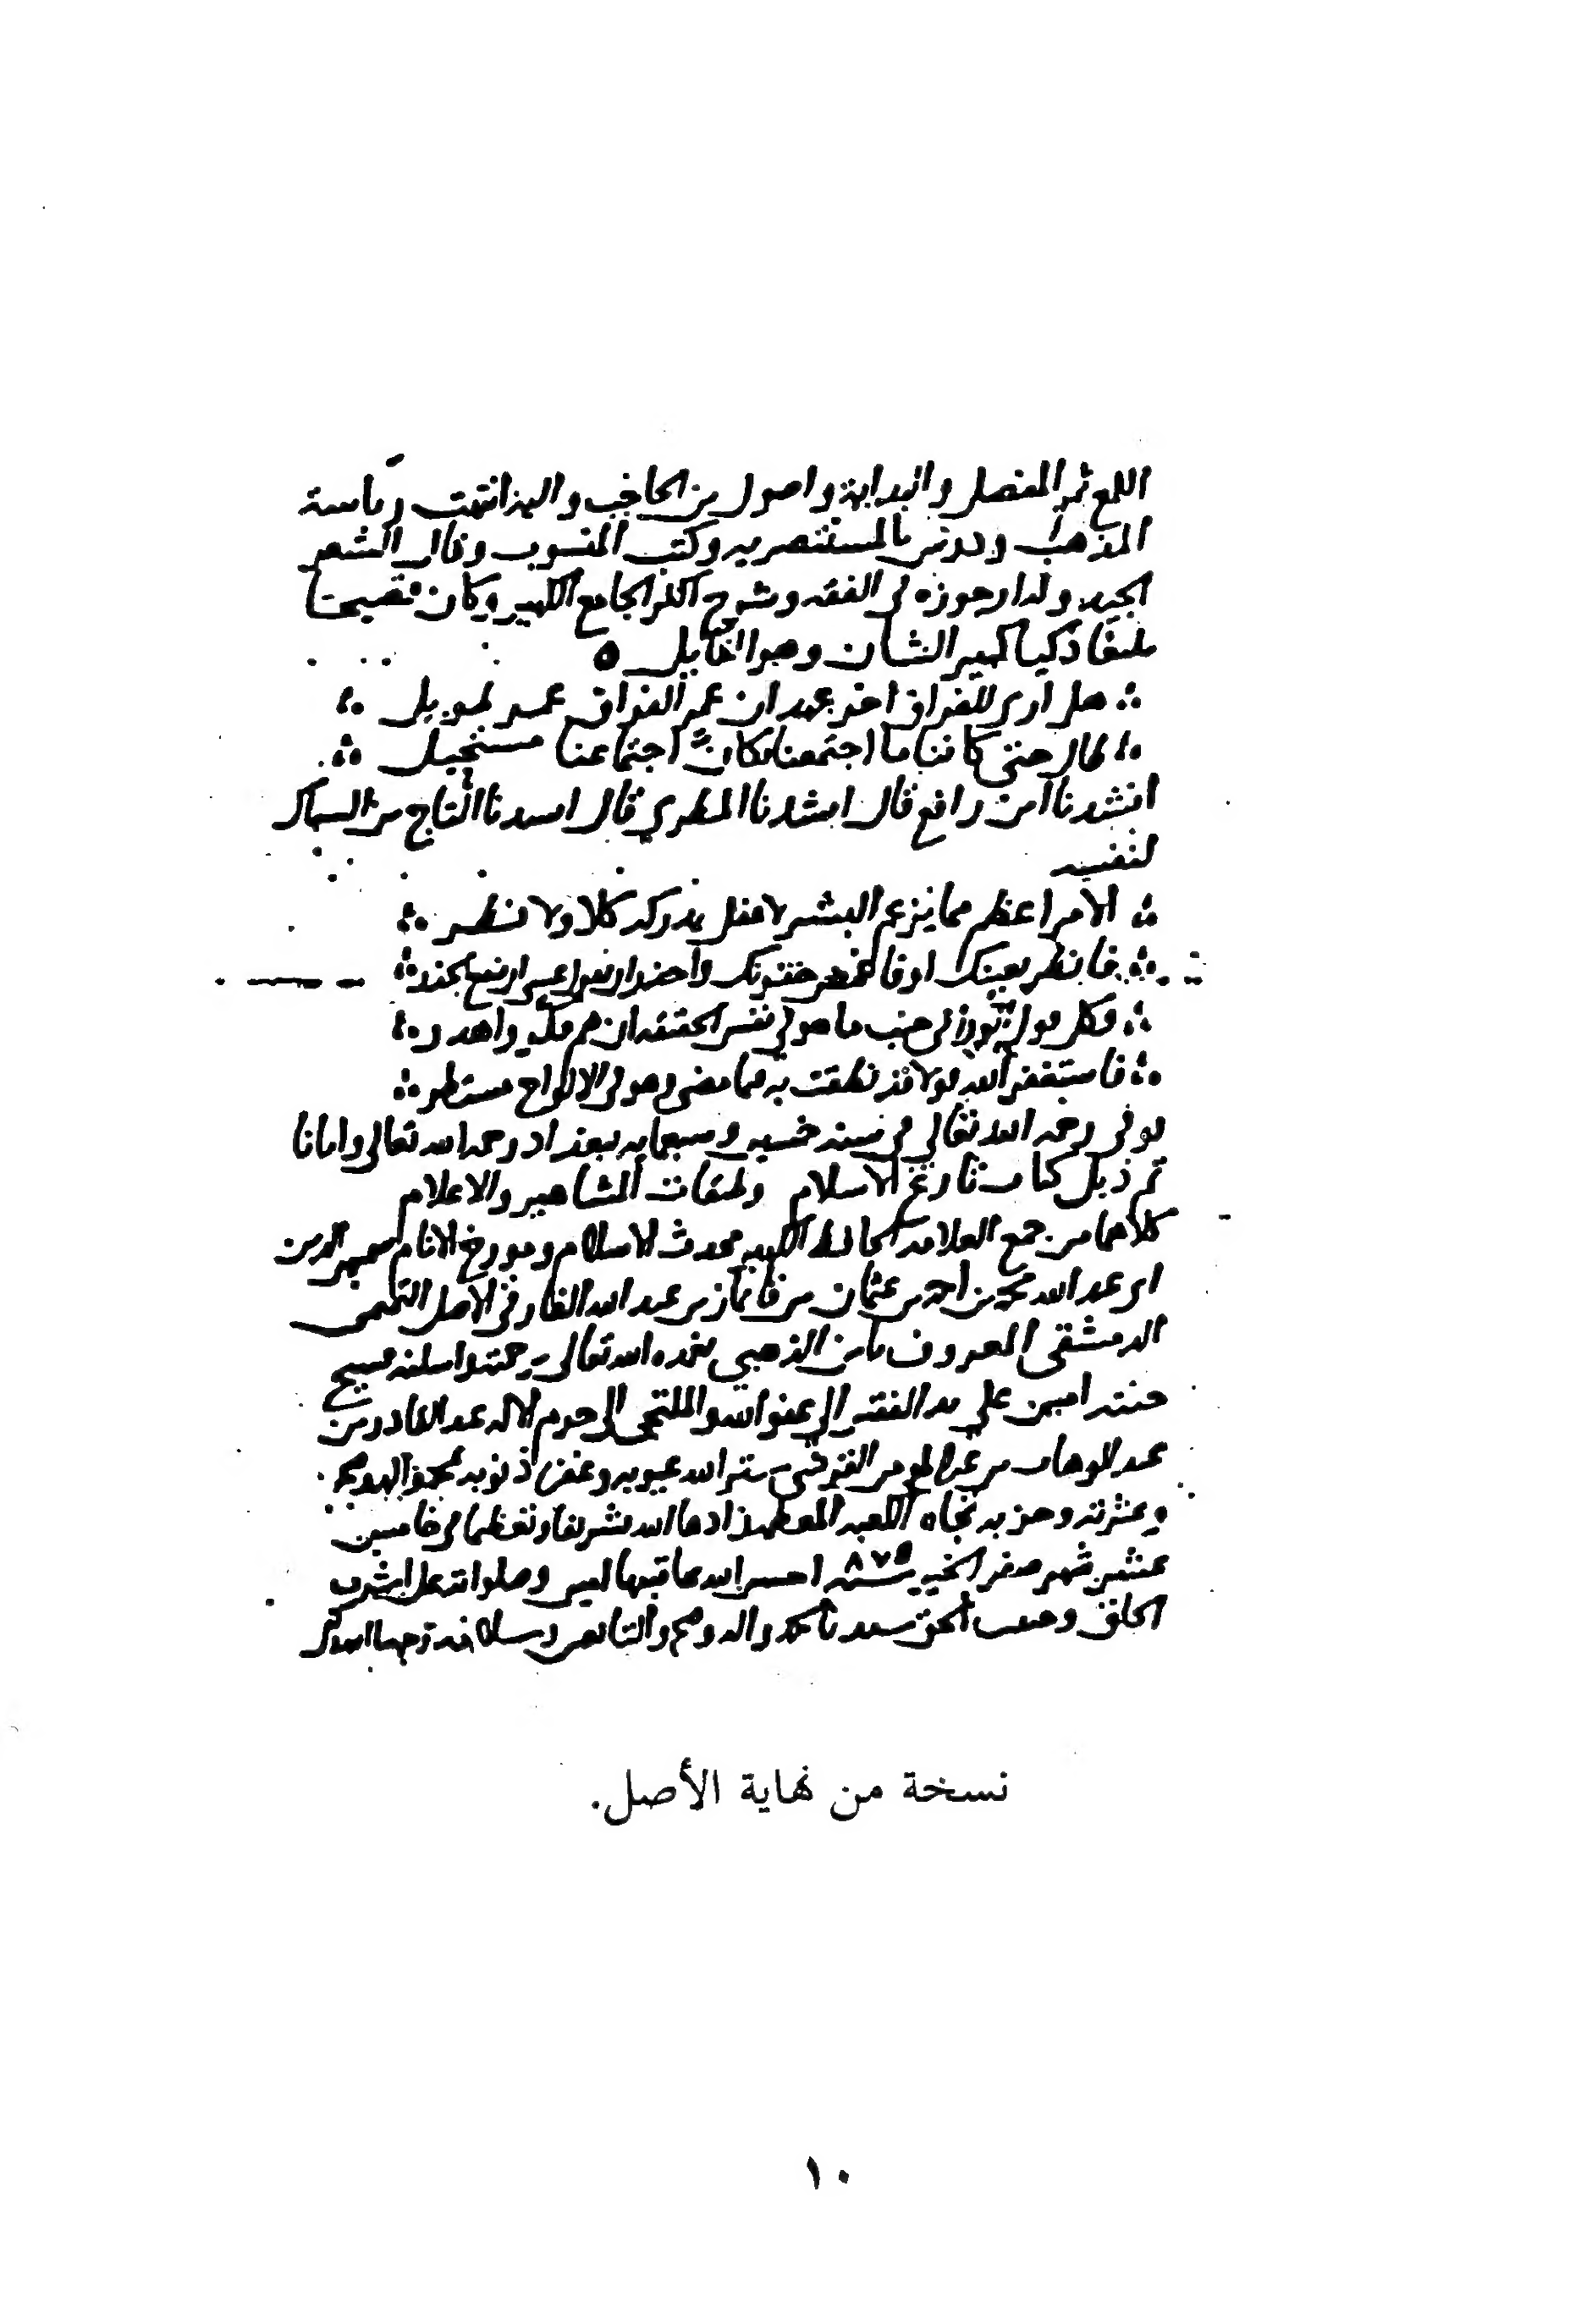 اللمع ثم المفصل والبداية واصول بن الحاجب واليه انتهت رياسة
المذهب ودرس بالمستنصريه وكتب المنسوب وقال الشعر
الجيد وله ارجوزه في الفقه وشرح اكثر الجامع الكبير وكان فصيحا
بليغا ذكيا كبير الشان وهو القايل ه
هل ارى للفراق اخر عهد ان عمر الفراق عمر طويل
طال حتى كاننا ما اجتمعنا فكان اجتماعنا مستحيل
انشدنا ابن رافع قال انشدنا المطري قال انشدنا التاج بن السباك
لنفسه
الامر اعظم مما يزعم البشر لا عقل يدركه كلا ولا نظر
فانظر بعينك او فاغمض جفونك واحذر ان تقول عسى ان ينفع الحذر
فكل قول الورى في جنب ما هو في نفس الحقيقه ان هم فكروا هدر
فاستغفر الله قولا قد نطقت به فيما مضى وهو في الالواح مستطر
توفي رحمه الله تعالى في سنه خمسين وسبعمايه ببغداد رحمه الله تعالى وايانا
تم ذيل كتاب تاريخ الاسلام وطبقات المشاهير والاعلام
كلاهما من جمع العلامه الحافظ الكبير محدث الاسلام ومورخ الانام شمس الدين
ابي عبد الله محمد بن احمد بن عثمان بن قايماز بن عبد الله الفارقي الاصل
الدمشقي المعروف بابن الذهبي تغمده الله تعالى برحمته واسكنه فسيح
جنته امين على يد الفقير الى عفو الله والملتجى الى حرم الاله عبد القادر بن
عبد الوهاب بن عبد المومن القرشي ستر الله عيوبه وغفر ذنوبه بمحمد واله وصحبه
وعترته وحزبه تجاه الكعبه المعظمه زادها الله تشريفا وتعظيما في خامسين
عشر شهر صفر الخير سنه ٨٧٥ احسن الله عاقبتها امين وصلواته على اشرف
الخلق وحبيب الحق سيدنا محمد واله وصحبه والتابعين وسلامه
نسخة من نهاية الأصل.
١٠